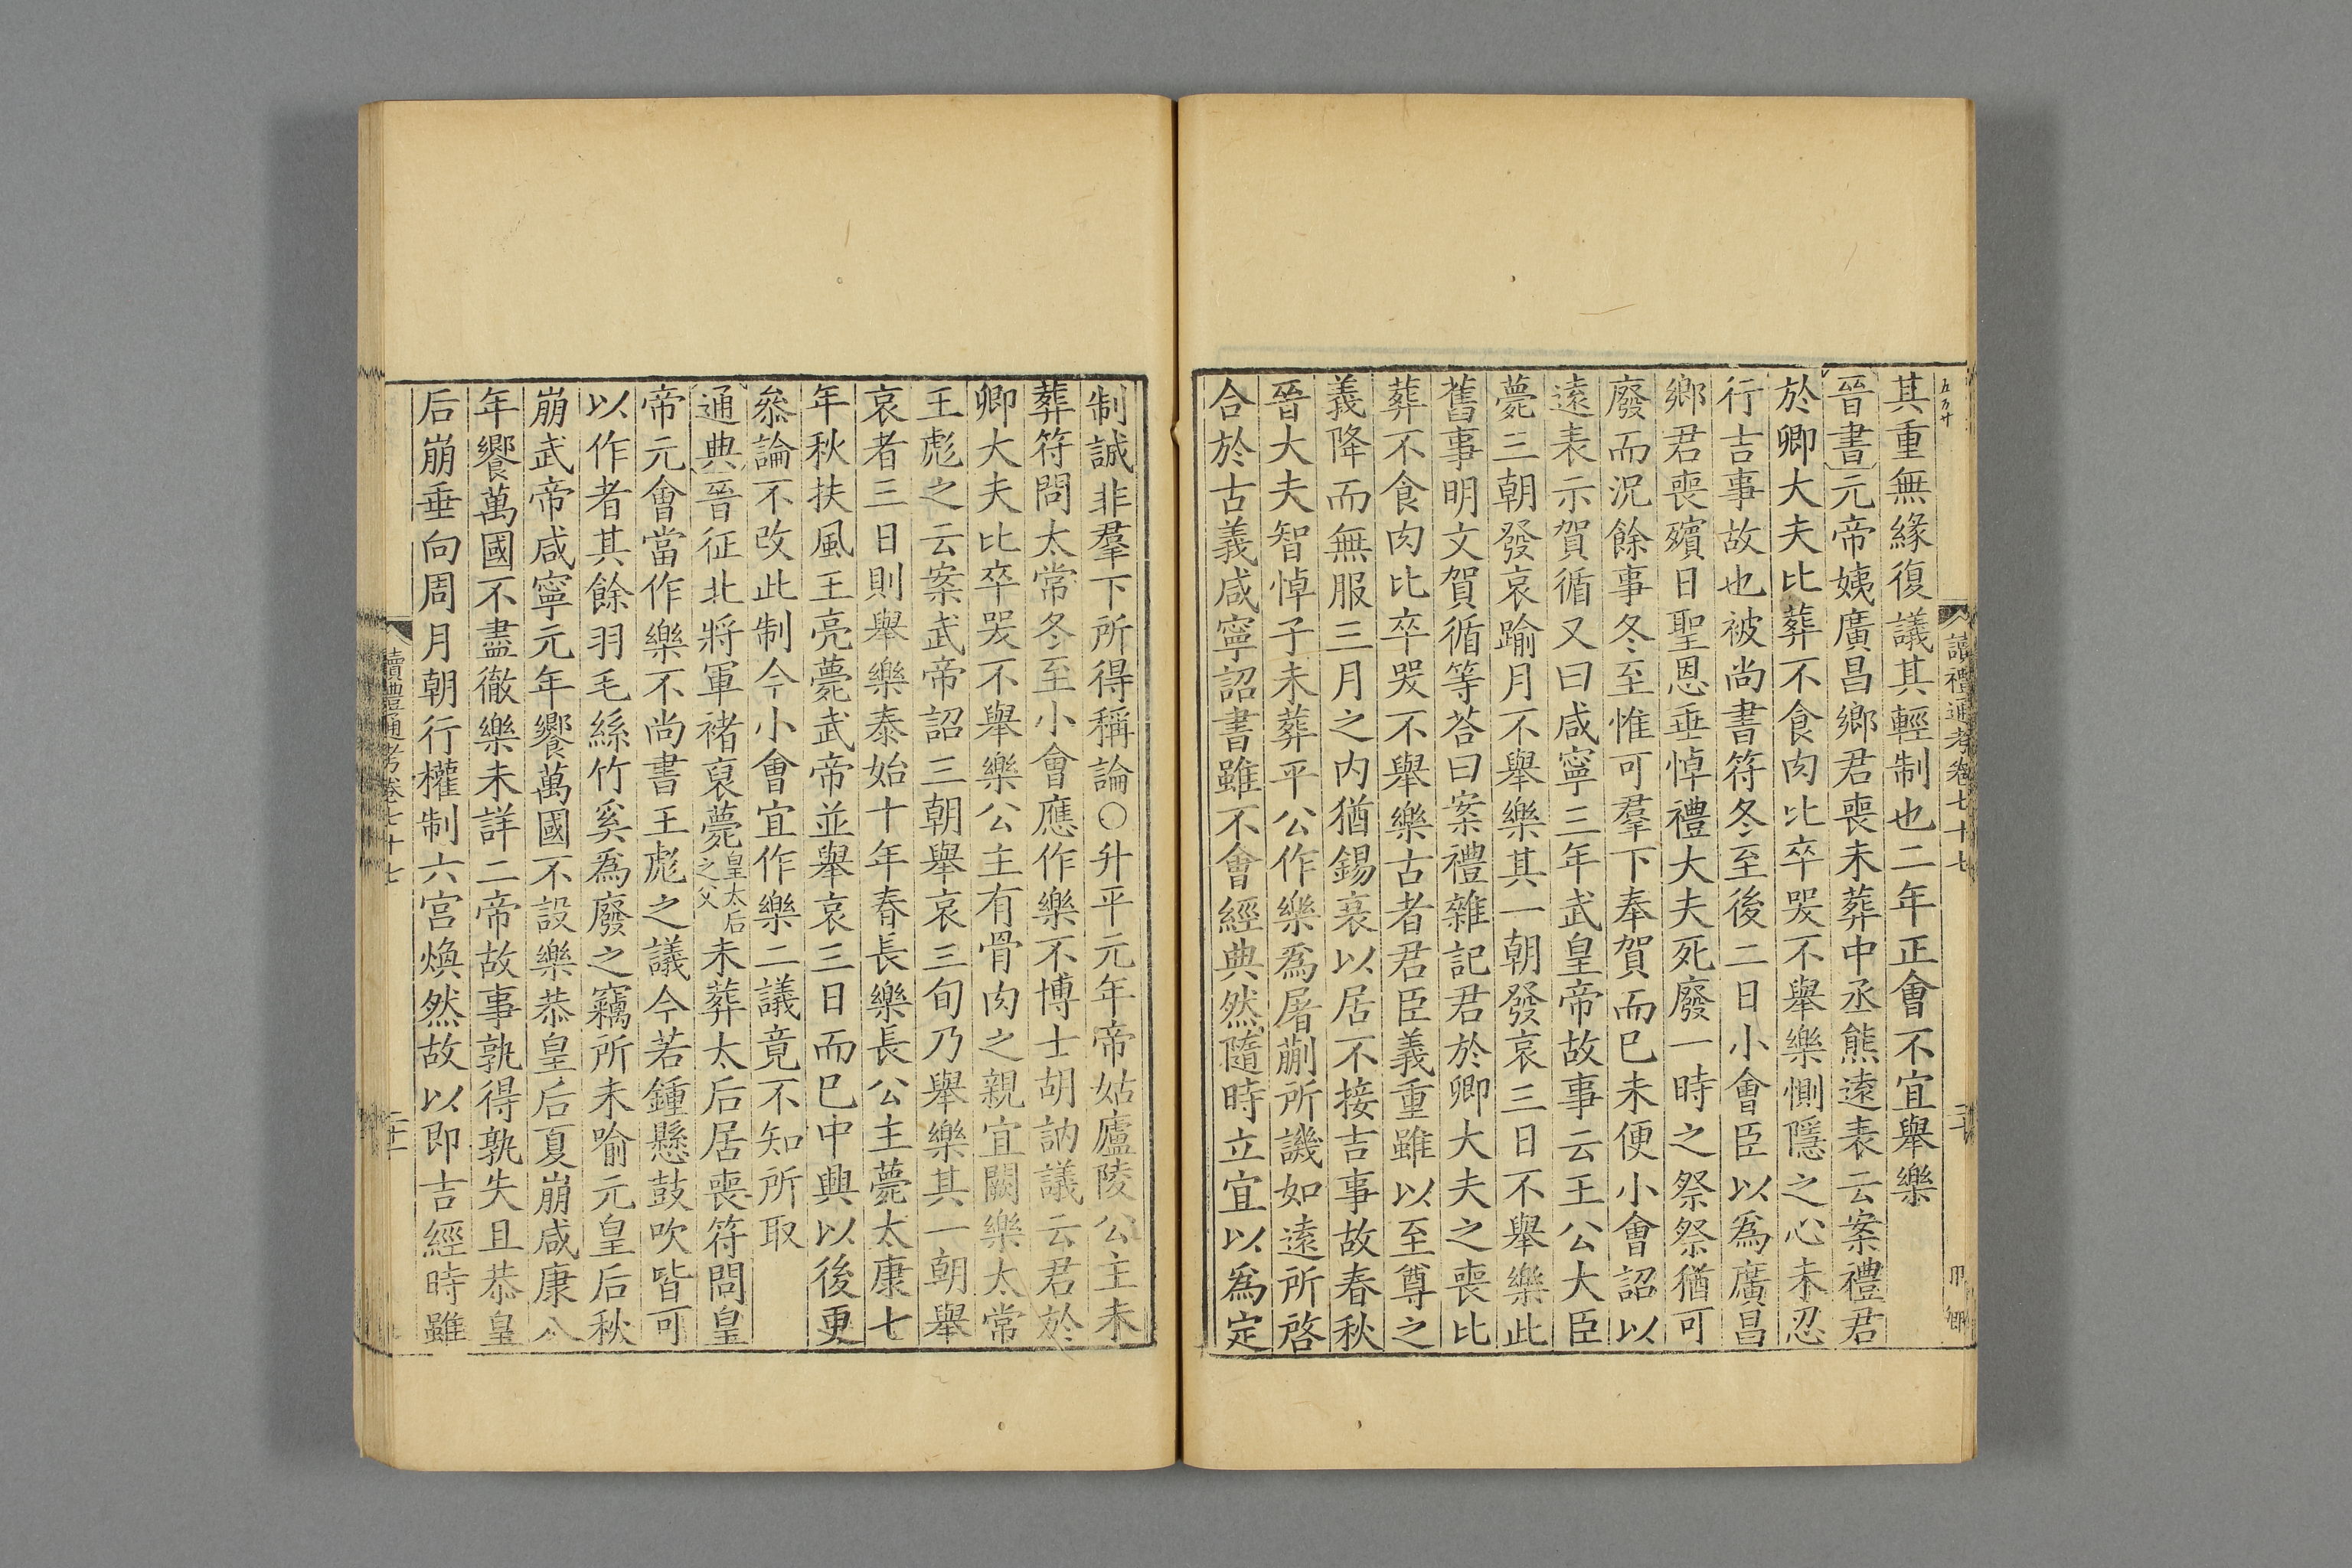 其重無緣復議其輕制也二年正會不宜舉樂
晉書元帝姨廣昌鄉君喪未葬中丞熊遠表云案禮君
於卿大夫比葬不食肉比卒哭不舉樂惻隱之心未忍
行吉事故也被尚書符冬至後二日小會臣以爲廣昌
鄉君喪殯日聖恩垂悼禮大夫死廢一時之祭祭猶可
廢而況餘事冬至惟可羣下奉賀而已未便小會詔以
遠表示賀循又曰咸寧三年武皇帝故事云王公大臣
薨三朝發哀踰月不舉樂其一朝發哀三日不舉樂此
舊事明文賀循等荅曰案禮雜記君於卿大夫之喪比
葬不食肉比卒哭不舉樂古者君臣義重雖以至尊之
義降而無服三月之內猶錫衰以居不接吉事故春秋
晉大夫智悼子未葬平公作樂爲屠蒯所譏如遠所啓
合於古義咸寧詔書雖不會經典然隨時立宜以爲定
讀禮通考卷七十七
二十
制誠非羣下所得稱論○升平元年帝姑廬陵公主未
葬符問太常冬至小會應作樂不博士胡訥議云君於
卿大夫比卒哭不舉樂公主有骨肉之親宜闕樂太常
王彪之云案武帝詔三朝舉哀三旬乃舉樂其一朝舉
哀者三日則舉樂泰始十年春長樂長公主薨太康七
年秋扶風王亮薨武帝並舉哀三日而已中興以後更
叅論不改此制今小會宜作樂二議竟不知所取
通典晉征北將軍褚裒薨皇太后之父未葬太后居喪符問皇
帝元會當作樂不尚書王彪之議今若鍾懸鼓吹皆可
以作者其餘羽毛絲竹奚爲廢之竊所未喻元皇后秋
崩武帝咸寧元年饗萬國不設樂恭皇后夏崩咸康八
年饗萬國不盡徹樂未詳二帝故事孰得孰失且恭皇
后崩垂向周月朝行權制六宮煥然故以即吉經時雖
讀禮通考卷七十七